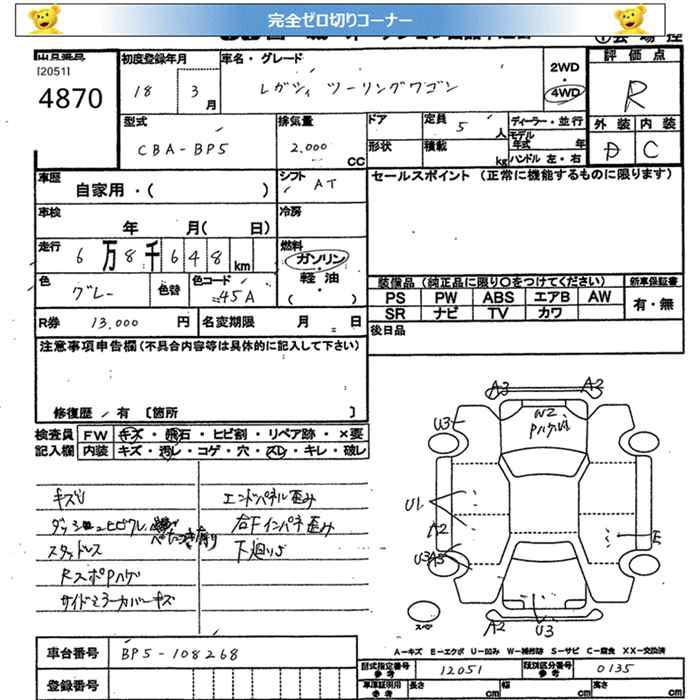 完全ゼロ切りコーナー
[2051]
4870
初度登録年月
18 3月
車名・グレード
レガシィ ツーリングワゴン
2WD
・
4WD
評価点
R
外装 内装
A C
型式
CBA-BP5
排気量
2.000
CC
ドア
形状
定員
5
人
積載
kg
ディーラー・並行
モデル
年式 年
ハンドル 左・右
車歴
自家用・( )
シフト
AT
セールスポイント (正常に機能するものに限ります)
車検
年 月( 日)
冷房
走行
6万8千648 km
燃料
ガソリン
・
軽油
( )
色
グレー
色替
色コード
45A
装備品 (純正品に限り○をつけてください)
PS PW ABS エアB AW
SR ナビ TV カワ
新車保証書
有・無
R券 13,000 円
名変期限 月 日
後日品
注意事項申告欄(不具合内容等は具体的に記入して下さい)
修復歴/有 [箇所 ]
検査員 FW キズ・飛石・ヒビ割・リペア跡・×要
記入欄 内装 キズ・汚レ・コゲ・穴・スレ・キレ・破レ
キズU
スタッドレス
RスポPハゲ
サイドミラーカバーキズ
エンドパネル歪み
右Fインパネ歪み
下廻りS
A3
A2
W2
U3
U1
A2
E
スペア
A2
U3
A-キズ E-エクボ U-凹み W-補修跡 S-サビ C-腐食 XX-交換済
車台番号
BP5-108268
登録番号
型式指定番号
参考
12051
類別区分番号
参考
0135
車庫証明用
参考
長さ cm
幅 cm
高さ cm